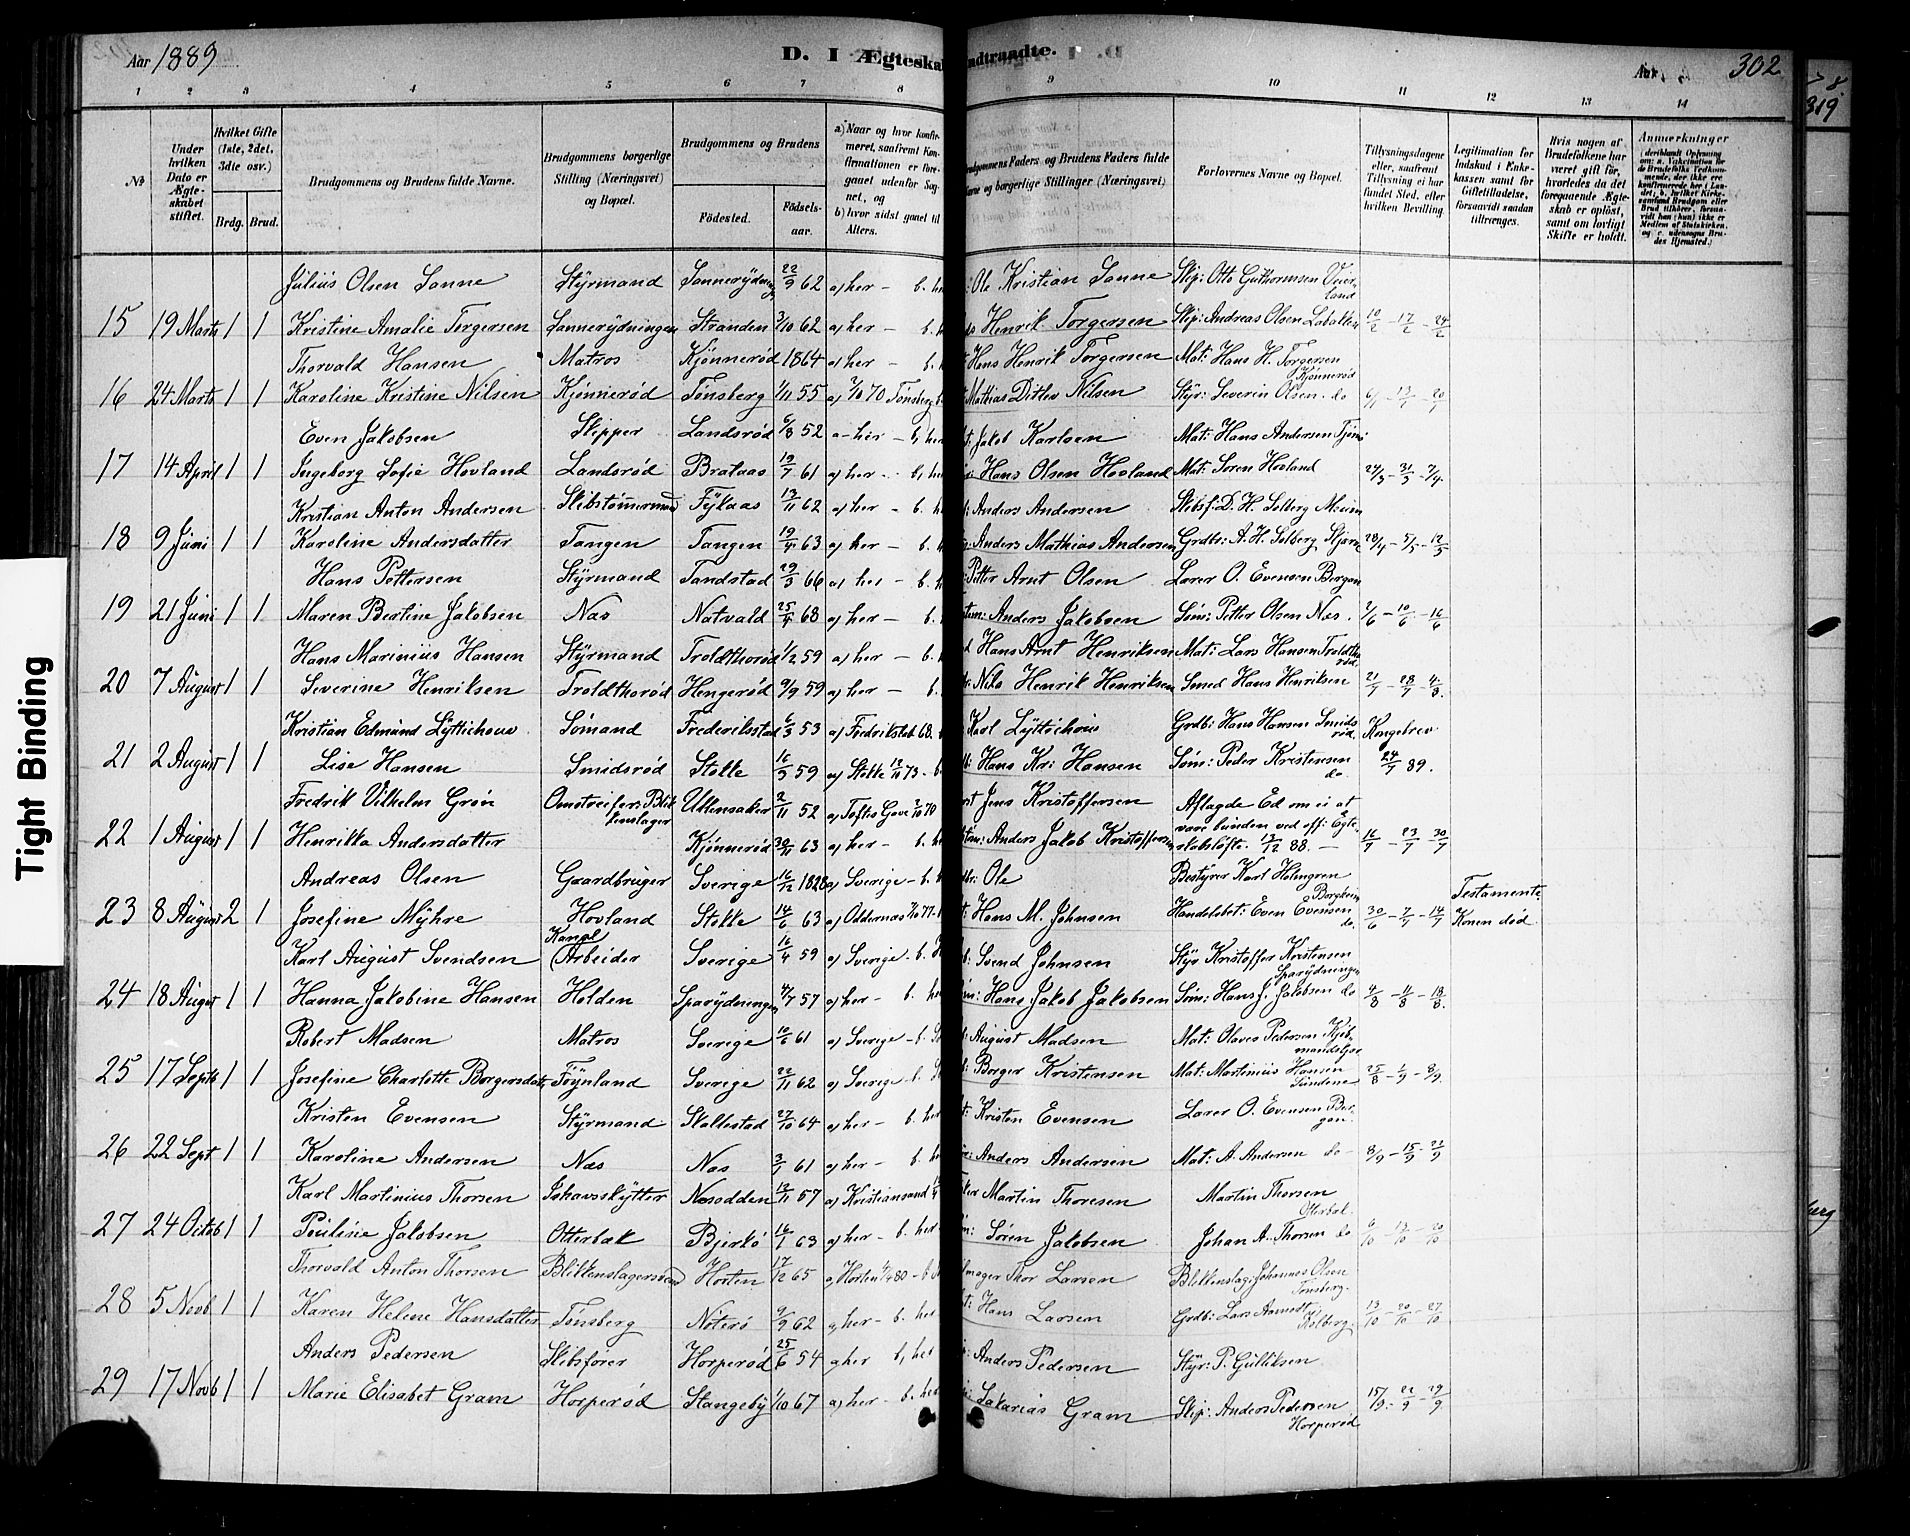 Aar 1889
D. I Ægteska
ndtraadte.
Aar
302
1 2 3 4 5 6 7 8 9 10 11 12 13 14
8
319
No
Under hvilken Dato er Ægteskabet stiftet.
Hvilket Gifte (1ste, 2det, 3die osv.)
Brdg. Brud.
Brudgommens og Brudens fulde Navne.
Brudgommens borgerlige Stilling (Næringsvei) og Bopæl.
Brudgommens og Brudens
Fødested.
Fødselsaar.
a) Naar og hvor konfirmeret, saafremt Konfirmationen er foregaaet udenfor Sognet, og
b) hvor sidst gaaet til Alters.
udgommens Faders og Brudens Faders fulde
Navne og borgerlige Stillinger (Næringsvei)
Forlovernes Navne og Bopæl.
Tillysningsdagene eller, saafremt Tillysning ei har fundet Sted, efter hvilken Bevilling.
Legitimation for Indskud i Enkekassen samt for Giftetilladelse, forsaavidt saadan tiltrænges.
Hvis nogen af Brudefolkene har været gift før, hvorledes da det foregaaende Ægteskab er opløst, samt om lovligt Skifte er holdt.
Anmerkninger
Julius Olsen Sanne Styrmand 22/9 62 a) her - b. he Ole Kristian Sanne Skip: Otto Guthormsen Veierland
15 19 Marts 1 1 Kristine Amalie Torgersen Sannerydningen Stranden 3/10 62 a) her - b. Henrik Torgersen Skip: Andreas Olsen 10/2 - 17/2 - 24/2
Thorvald Hansen Matros Kjønnerød 1864 a) her - b. Hans Henrik Torgersen Mat: Hans H. Torgersen Kjønnerød
16 24 Marts 1 1 Karoline Kristine Nilsen Kjønnerød Tønsberg 1/11 55 a) 2/10 70 Tønsberg Mathias Ditlev Nilsen Styr: Severin Olsen do
Even Jakobsen Skipper Landsrød 6/8 52 a - her - b, her Jakob Karlsen Mat: Hans Andersen
17 14 April 1 1 Ingeborg Sofie Hovland Landsrød Brataas 19/7 61 a) her - b, he Hans Olsen Hovland Mat: Søren Hovland 24/3 - 31/3 - 7/4
Kristian Anton Andersen Skibstømmermand Fykaas 13/11 62 a) her - b. h Anders Andersen Skibsf: D. H. Solberg
18 9 Juni 1 1 Karoline Andersdatter Tangen Tangen 19/4 63 a) her - b. Anders Mathias Andersen Grdb: A. H. Solberg 28/4 - 5/5 - 12/5
Hans Pettersen Styrmand Tandstad 29/3 66 a) her - b. Petter Arnt Olsen Lærer O. Evensen Bergan
19 21 Juni 1 1 Maren Bertine Jakobsen Næs Natvald 25/4 68 a) her - b. Anders Jakobsen Søm: Petter Olsen Næs. 2/6 - 10/6 - 16/6
Hans Marinius Hansen Styrmand Troldthorød 1/2 59 a) her - b. Hans Arnt Henriksen Mat: Lars Hansen Troldthorød
20 7 August 1 1 Severine Henriksen Troldthorød Hengerød 9/9 59 a) her - b. Nils Henrik Henriksen Smed Hans Henriksen 21/7 - 28/7 - 4/8.
Kristian Edmund Lyttichous Sømand Frederiksstad 6/3 53 a) Fredrikstad 68. Karl Lyttichous Grdb: Hans Hansen Smidsrød Kongebrev
21 2 August 1 1 Lise Hansen Smidsrød Stokke 16/9 59 a) Stokke 73 - Hans Kr: Hansen Søm: Peder Kristensen do 24/7 89.
Fredrik Vilhelm Grøn Omstreifer, Blikkenslager Ullensaker 2/11 52 a) Toftes Gave 2/10 70 Jens Kristoffersen Aflagde Ed om ei at
22 1 August 1 1 Henrikka Andersdatter Kjønnerød 30/11 63 a) her - b. h Anders Jakob Kristoffersen være bunden ved off: Egteskabsløfte. 13/12 88. - 16/7 - 23/7 - 30/7
Andreas Olsen Gaardbruger Sverige 16/12 1828 a) Sverige - b. Ole Bestyrer Karl Holmgren Borgheim
23 8 August 2 1 Josefine Myhre Hovland Stokke 14/6 63 a) Oddernæs 77 - Hans M. Johnsen Handelsbet: Even Evensen do. 30/6 - 7/7 - 14/7 Testamente. Konen død.
Karl August Svendsen Kangl Arbeider Sverige 16/4 59 a) Sverige - b. Svend Johnsen Styr Kristoffer Kristensen Sparydningen
24 18 August 1 1 Hanna Jakobine Hansen Holden Sparydningen 4/7 57 a) her - b. her Hans Jakob Jakobsen Søm: Hans J. Jakobsen do 4/8 - 11/8 - 18/8.
Robert Madsen Matros Sverige 10/6 61 a) Sverige - b. August Madsen Mat: Olaves Pedersen
25 17 Septb 1 1 Josefine Charlotte Borgersdatr Føynland Sverige 22/11 62 a) Sverige - b. Borger Kristensen Mat: Martinius Hansen Sundene 25/8 - 1/9 - 8/9.
Kristen Evensen Styrmand Skallestad 27/10 64 a) her - b. her Kristen Evensen Lærer O. Evensen Bergan
26 22 Sept 1 1 Karoline Andersen Næs Næs 3/7 61 a) her - b. he Anders Andersen Mat: A. Andersen do - 8/9 - 15/9 - 22/9
Karl Martinius Thorsen Ishavsskytter Næsodden 13/11 57 a) Kristiansand Martin Thoresen Martin Thorsen Otterbæk
27 24 Octob 1 1 Pauline Jakobsen Otterbæk Bjerkø 16/1 63 a) her - b. her Søren Jakobsen Johan A. Thorsen do 6/10 - 13/10 - 20/10
Thorvald Anton Thorsen Blikkenslagersvend Horten 17/12 65 a) Horten 80 - b. Thor Larsen Blikkenslag: Johannes Olsen Tønsberg.
28 5 Novb 1 1 Karen Helene Hansdatter Tønsberg Nøterø 9/9 62 a) her - b. her Hans Larsen Grdb: Lars Kolberg 13/10 - 20/10 - 27/10
Anders Pedersen Skibsfører Horperød 25/6 54 a) her b, her Anders Pedersen Styr: P. Gulliksen
29 17 Novb 1 1 Marie Elisabet Gram Horperød Stangeby 1/10 67 a) her - b. her Sakarias Gram Skip: Anders Pedersen Horperød 15/9 - 22/9 - 29/9
Tight Binding